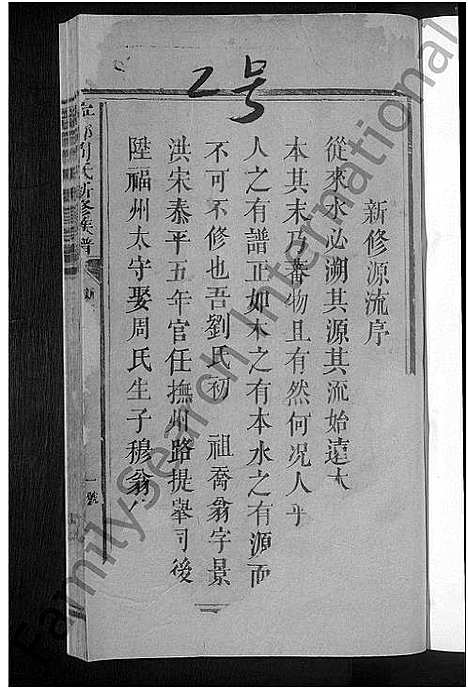 2号
新修源流序
從來水必溯其源其流始遠木
本其末乃蕃物且有然何况人乎
人之有譜正如木之有本水之有源而
不可不修也吾劉氏初 祖喬翁字景
洪宋泰平五年官任撫州路提舉司後
陞福州太守娶周氏生子穆翁
劉氏新修族譜
FamilySearch International